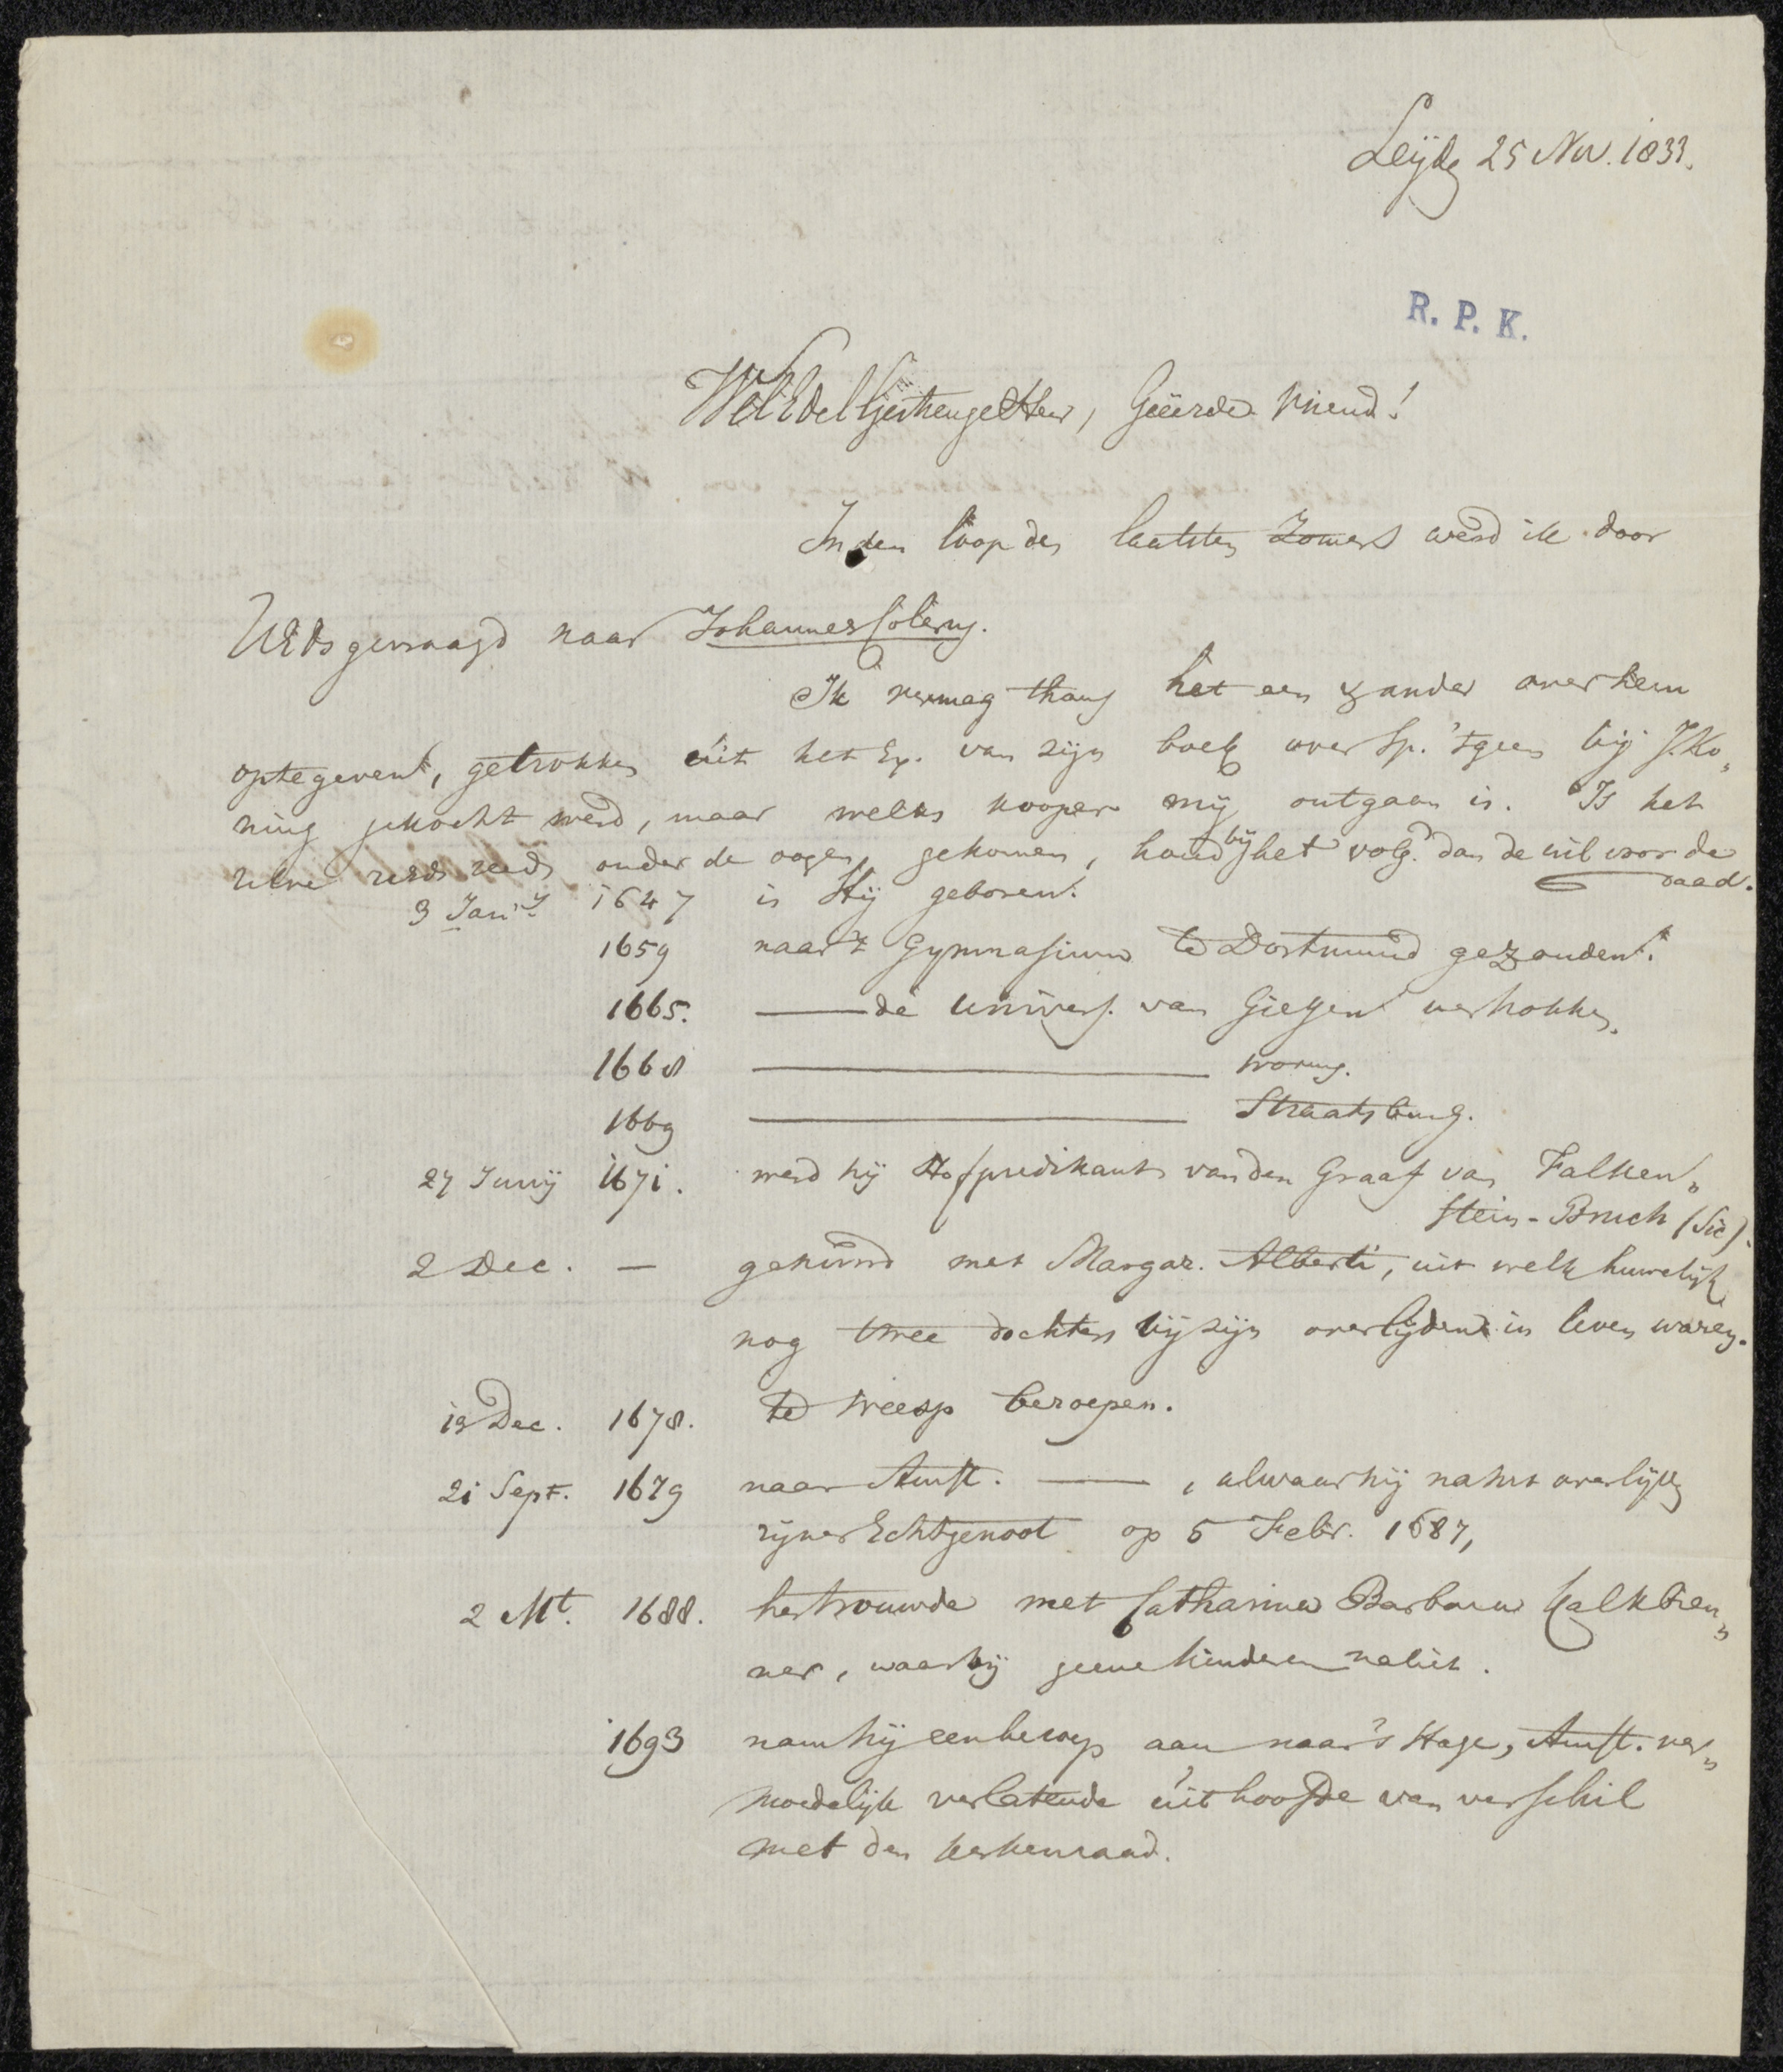 Leijden 25 Nov. 1833.
R. P. K.
WelEdelGestrenge Heer, Geëerde Vriend!
In den loop des laatsten Zomers werd ik door
UEds gevraagd naar Johannes Colerus.
Ik vermag thans het een & ander over hem
optegeven, getrokken uit het Ex. van zijn boek over Sp. 'tgeen bij J. Ko„
ning gekocht werd, maar welks kooper mij ontgaan is. Is het
zelve reeds onder de oogen gekomen, houd bij het volg.d dan de wil voor de
daad.
3 Jan.ij 1647 is Hij geboren.
1659 naar 't Gymnasium te Dortmund gezonden.
1665. —— de univers. van Giessen vertrokken.
1668 —— Worms.
1669 —— Straatsburg.
27 Junij 1671. werd hij Hofpredikant van den Graaf van Falken„
stein-Bruch (sic).
2 Dec. — gehuwd met Margar. Alberti, uit welk huwelijk
nog twee dochters bij zijn overlijden in leven waren.
19 Dec. 1678. te Weesp beroepen.
21 Sept. 1679 naar Amst. ——, alwaar hij na het overlijden
zijner Echtgenoot op 5 Febr. 1687,
2 Mt. 1688. hertrouwde met Catharina Barbara Kalkbren„
ner, waarbij geene kinderen naliet.
1693 nam hij een beroep aan naar 's Hage, Amst. ver„
moedelijk verlatende uithoofde van verschil
met den kerkenraad.